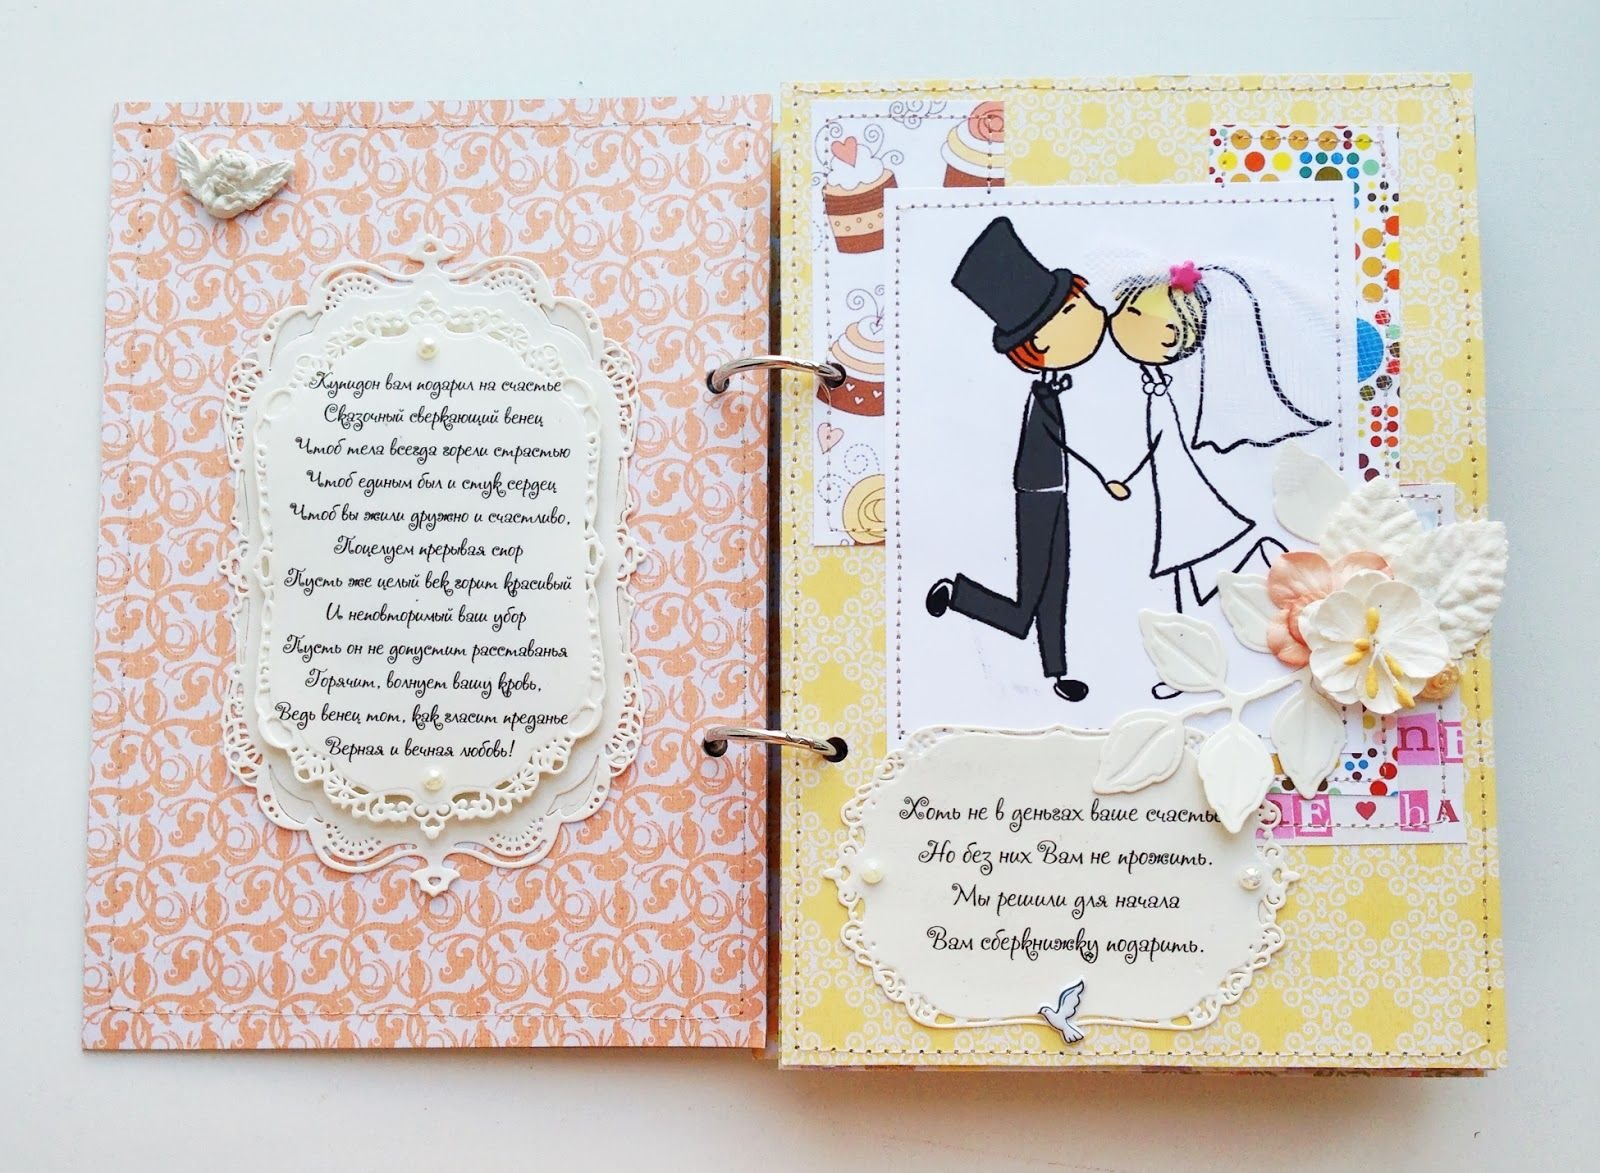 Купидон вам подарил на счастье
Сказочный сверкающий венец
Чтоб тела всегда горели страстью
Чтоб единым был и стук сердец
Чтоб вы жили дружно и счастливо,
Поцелуем прерывая спор
Пусть же целый век горит красивый
И неповторимый ваш убор
Пусть он не допустит расставанья
Горячит, волнует вашу кровь,
Ведь венец тот, как гласит преданье
Верная и вечная любовь!
Хоть не в деньгах ваше счастье
Но без них Вам не прожить.
Мы решили для начала
Вам сберкнижку подарить.
ni
E ♥ hA